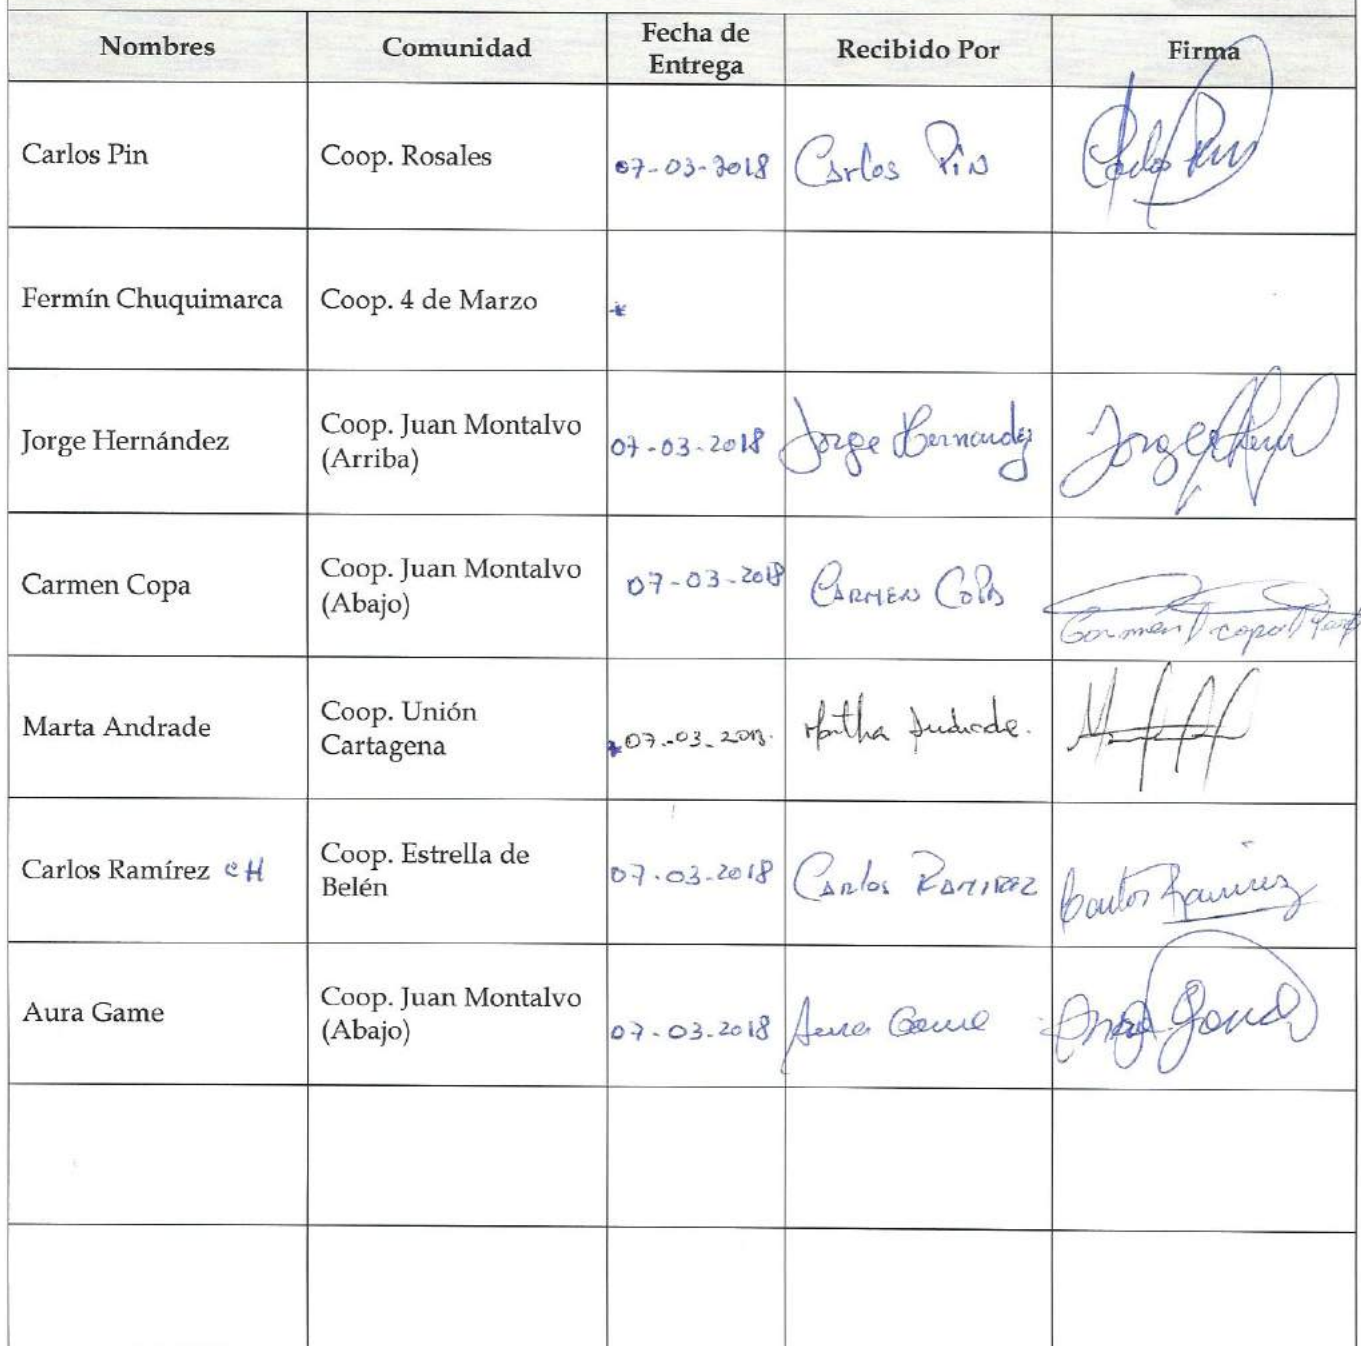 Nombres
Comunidad
Fecha de
Entrega
Recibido Por
Firma
Carlos Pin
Coop. Rosales
07-03-2018
Carlos Pin
Fermín Chuquimarca
Coop. 4 de Marzo
*
Jorge Hernández
Coop. Juan Montalvo
(Arriba)
07-03-2018
Jorge Hernandez
Carmen Copa
Coop. Juan Montalvo
(Abajo)
07-03-2018
CARMEN COPA
Carmen copa
Marta Andrade
Coop. Unión
Cartagena
07-03-2018.
Martha Andrade.
Carlos Ramírez CH
Coop. Estrella de
Belén
07-03-2018
Carlos RAMIREZ
Carlos Ramirez
Aura Game
Coop. Juan Montalvo
(Abajo)
07-03-2018
Aura Game